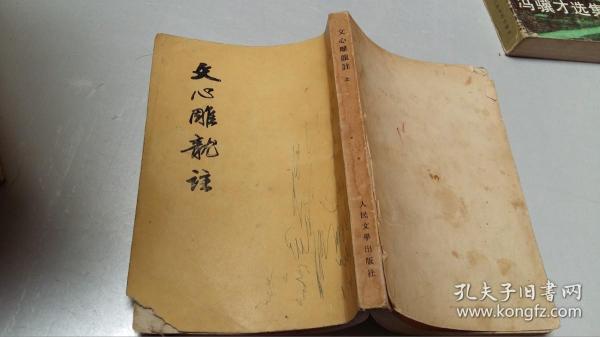 文心雕龍註
文心雕龍註 上
人民文學出版社
冯骥才选集
孔夫子旧书网
kongfz.com